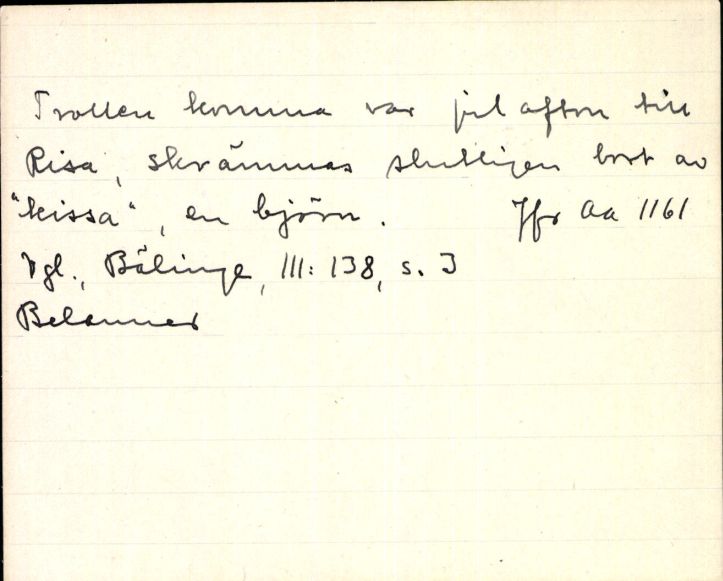 Trollen komma var julafton till
Risa, skrämmas slutligen bort av
"kissa", en björn. Jfr Aa 1161
Vgl., Bälinge, III: 138, s. 3